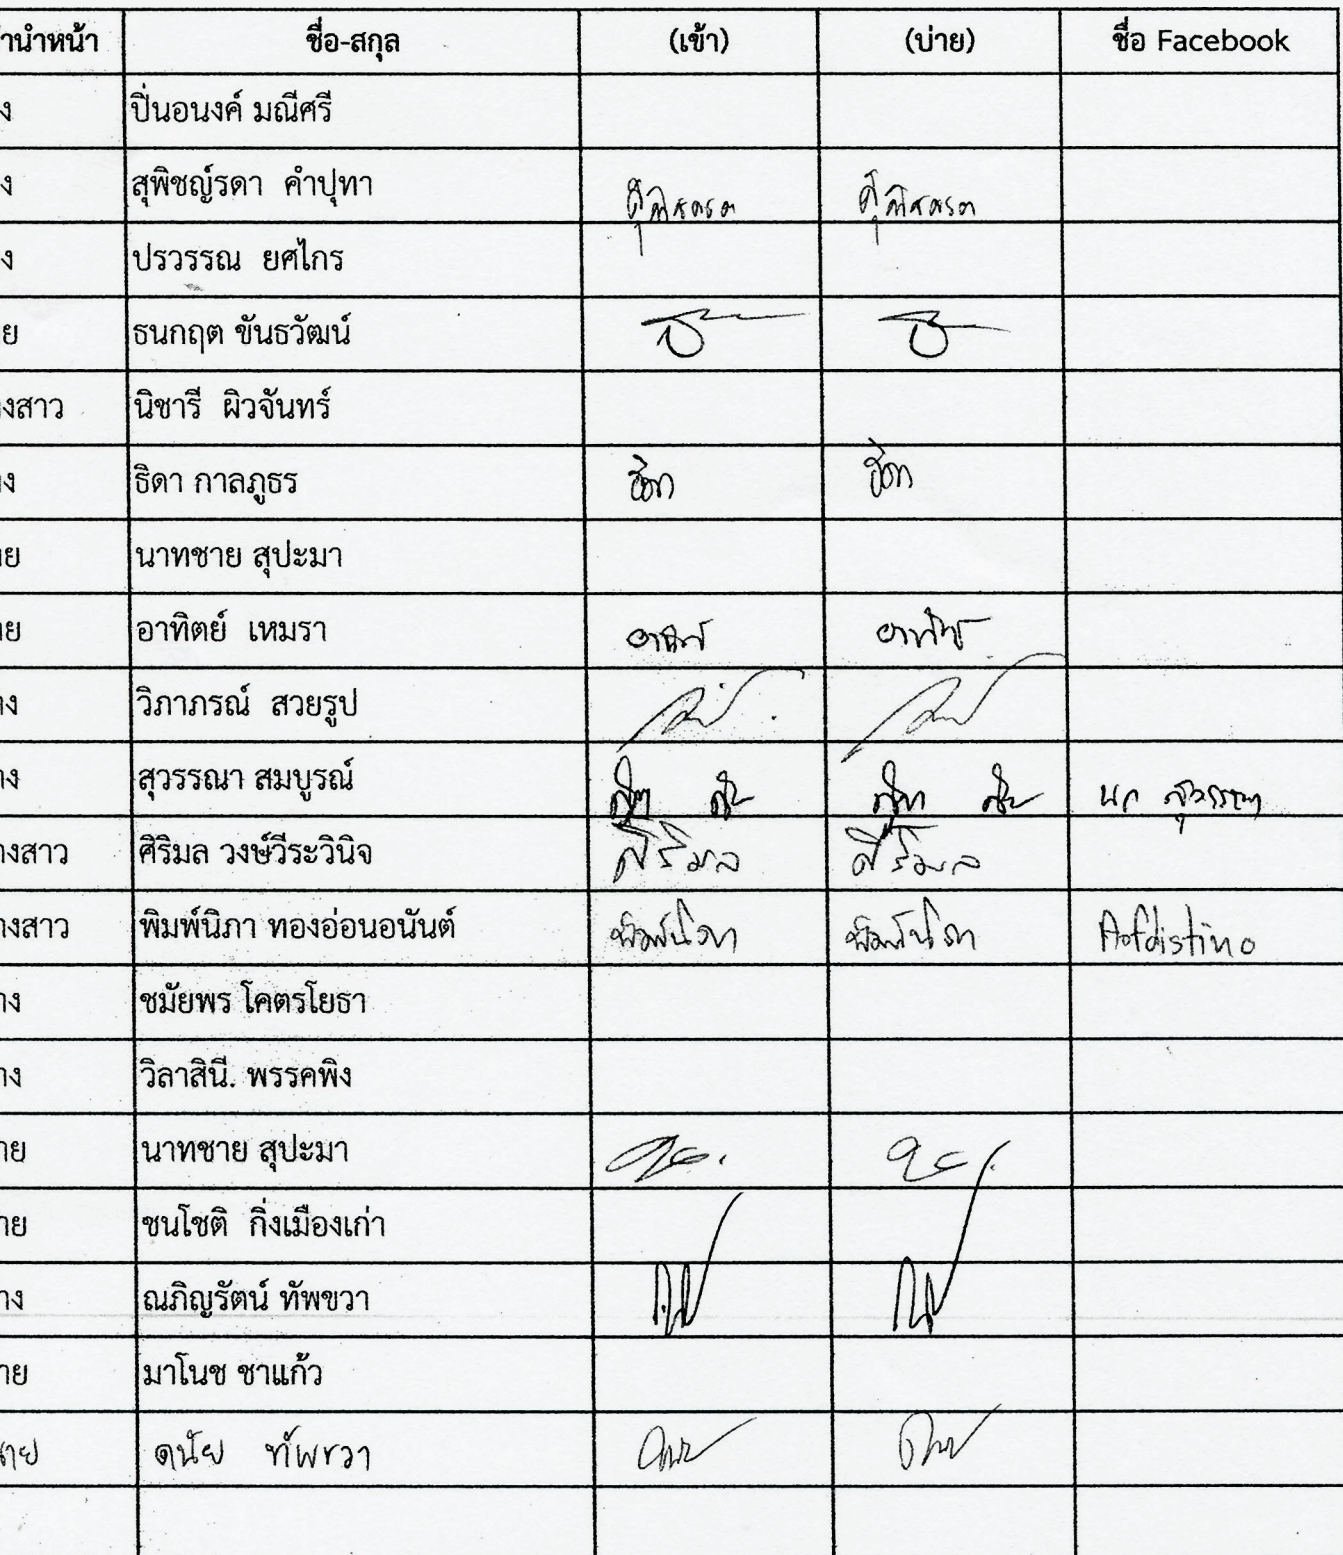 านำหน้า ชื่อ-สกุล (เข้า) (บ่าย) ชื่อ Facebook
ง ปิ่นอนงค์ มณีศรี
ง สุพิชญ์รดา คำปุทา
ง ปรวรรณ ยศไกร
ย ธนกฤต ขันธวัฒน์
งสาว นิชารี ผิวจันทร์
ง ธิดา กาลภูธร ธิดา ธิดา
าย นาทชาย สุปะมา
าย อาทิตย์ เหมรา อาทิตย์ อาทิตย์
าง วิภาภรณ์ สวยรูป
าง สุวรรณา สมบูรณ์
างสาว ศิริมล วงษ์วีระวินิจ ศิริมล ศิริมล
างสาว พิมพ์นิภา ทองอ่อนอนันต์ พิมพ์นิภา พิมพ์นิภา Aofdistino
าง ชมัยพร โคตรโยธา
าง วิลาสินี. พรรคพิง
าย นาทชาย สุปะมา
าย ชนโชติ กิ่งเมืองเก่า
าง ณภิญรัตน์ ทัพขวา
าย มาโนช ชาแก้ว
นาย ดนัย ทัพขวา